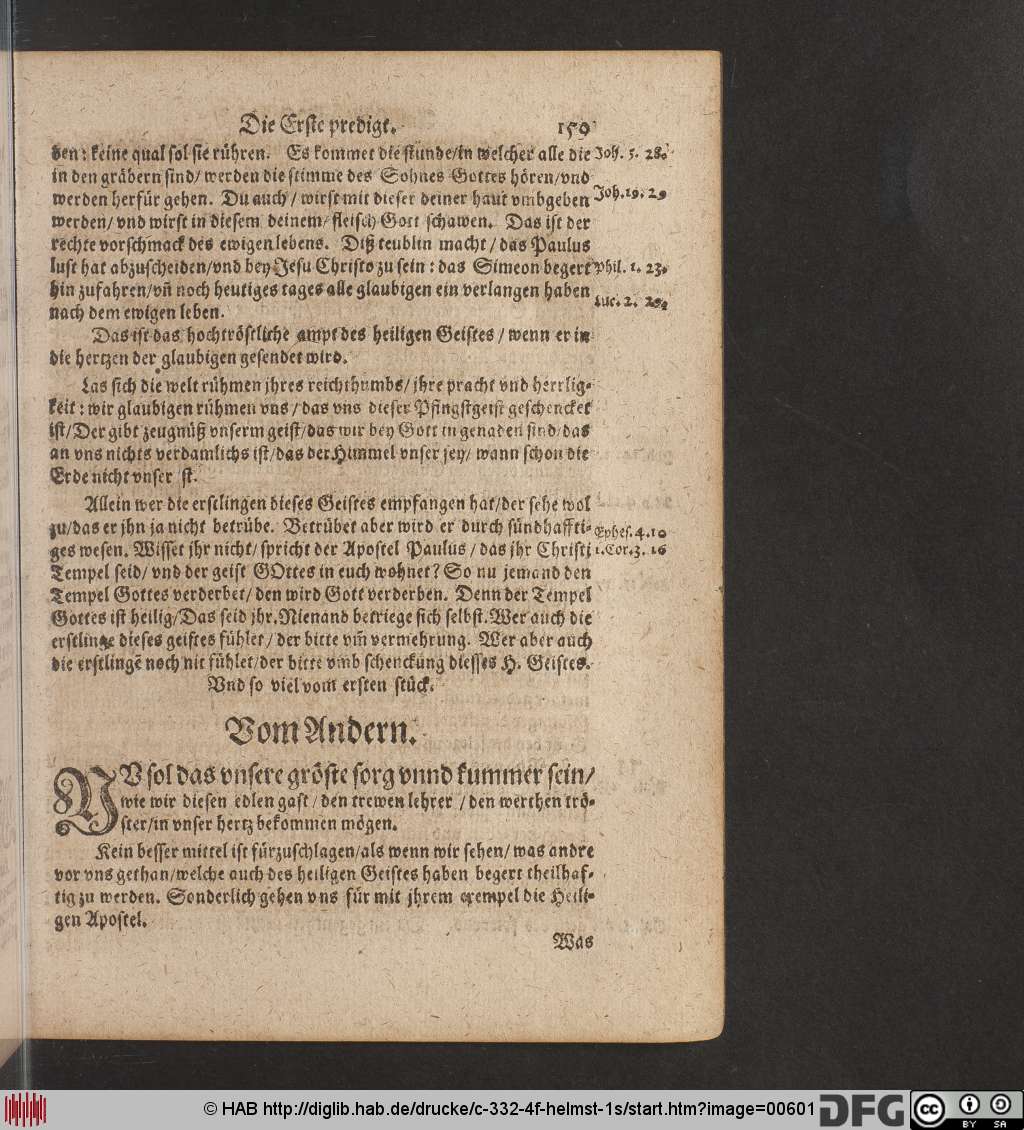 Die Erste predigt. 159
den: keine qual sol sie rühren. Es kommet die stunde/in welcher alle die Joh. 5. 28.
in den gräbern sind/ werden die stimme des Sohnes Gottes hören/vnd
werden herfür gehen. Du auch/ wirst mit dieser deiner haut vmbgeben Joh. 19. 29
werden/ vnd wirst in diesem deinem/ fleisch Gott schawen. Das ist der
rechte vorschmack des ewigen lebens. Diß teublin macht/ das Paulus
lust hat abzuscheiden/vnd bey Jesu Christo zu sein: das Simeon begert Phil. 1. 23.
hin zufahren/vñ noch heutiges tages alle glaubigen ein verlangen haben
nach dem ewigen leben. Luc. 2. 29.
Das ist das hochtröstliche ampt des heiligen Geistes/ wenn er in
die hertzen der glaubigen gesendet wird.
Las sich die welt rühmen jhres reichthumbs/ jhre pracht vnd herrlig-
keit: wir glaubigen rühmen vns/ das vns dieser Pfingstgeist geschencket
ist/Der gibt zeugnüß vnserm geist/das wir bey Gott in genaden sind/das
an vns nichts verdamlichs ist/das der Himmel vnser sey/ wann schon die
Erde nicht vnser ist.
Allein wer die erstlingen dieses Geistes empfangen hat/der sehe wol
zu/das er jhn ja nicht betrübe. Betrübet aber wird er durch sündhaffti- Ephes. 4. 10
ges wesen. Wisset jhr nicht/ spricht der Apostel Paulus/ das jhr Christi 1. Cor. 3. 16
Tempel seid/ vnd der geist GOttes in euch wohnet? So nu jemand den
Tempel Gottes verderbet/ den wird Gott verderben. Denn der Tempel
Gottes ist heilig/Das seid jhr. Nienand betriege sich selbst. Wer auch die
erstlinge dieses geistes fühlet/ der bitte vm̃ vermehrung. Wer aber auch
die erstlingē noch nit fühlet/der bitte vmb schenckung diesses H. Geistes.
Vnd so viel vom ersten stück.
Vom Andern.
NV sol das vnsere gröste sorg vnnd kummer sein/
wie wir diesen edlen gast/ den trewen lehrer/ den werthen trö-
ster/in vnser hertz bekommen mögen.
Kein besser mittel ist fürzuschlagen/als wenn wir sehen/ was andre
vor vns gethan/welche auch des heiligen Geistes haben begert theilhaf-
tig zu werden. Sonderlich gehen vns für mit jhrem exempel die Heili-
gen Apostel.
Was
© HAB http://diglib.hab.de/drucke/c-332-4f-helmst-1s/start.htm?image=00601 DFG cc BY SA